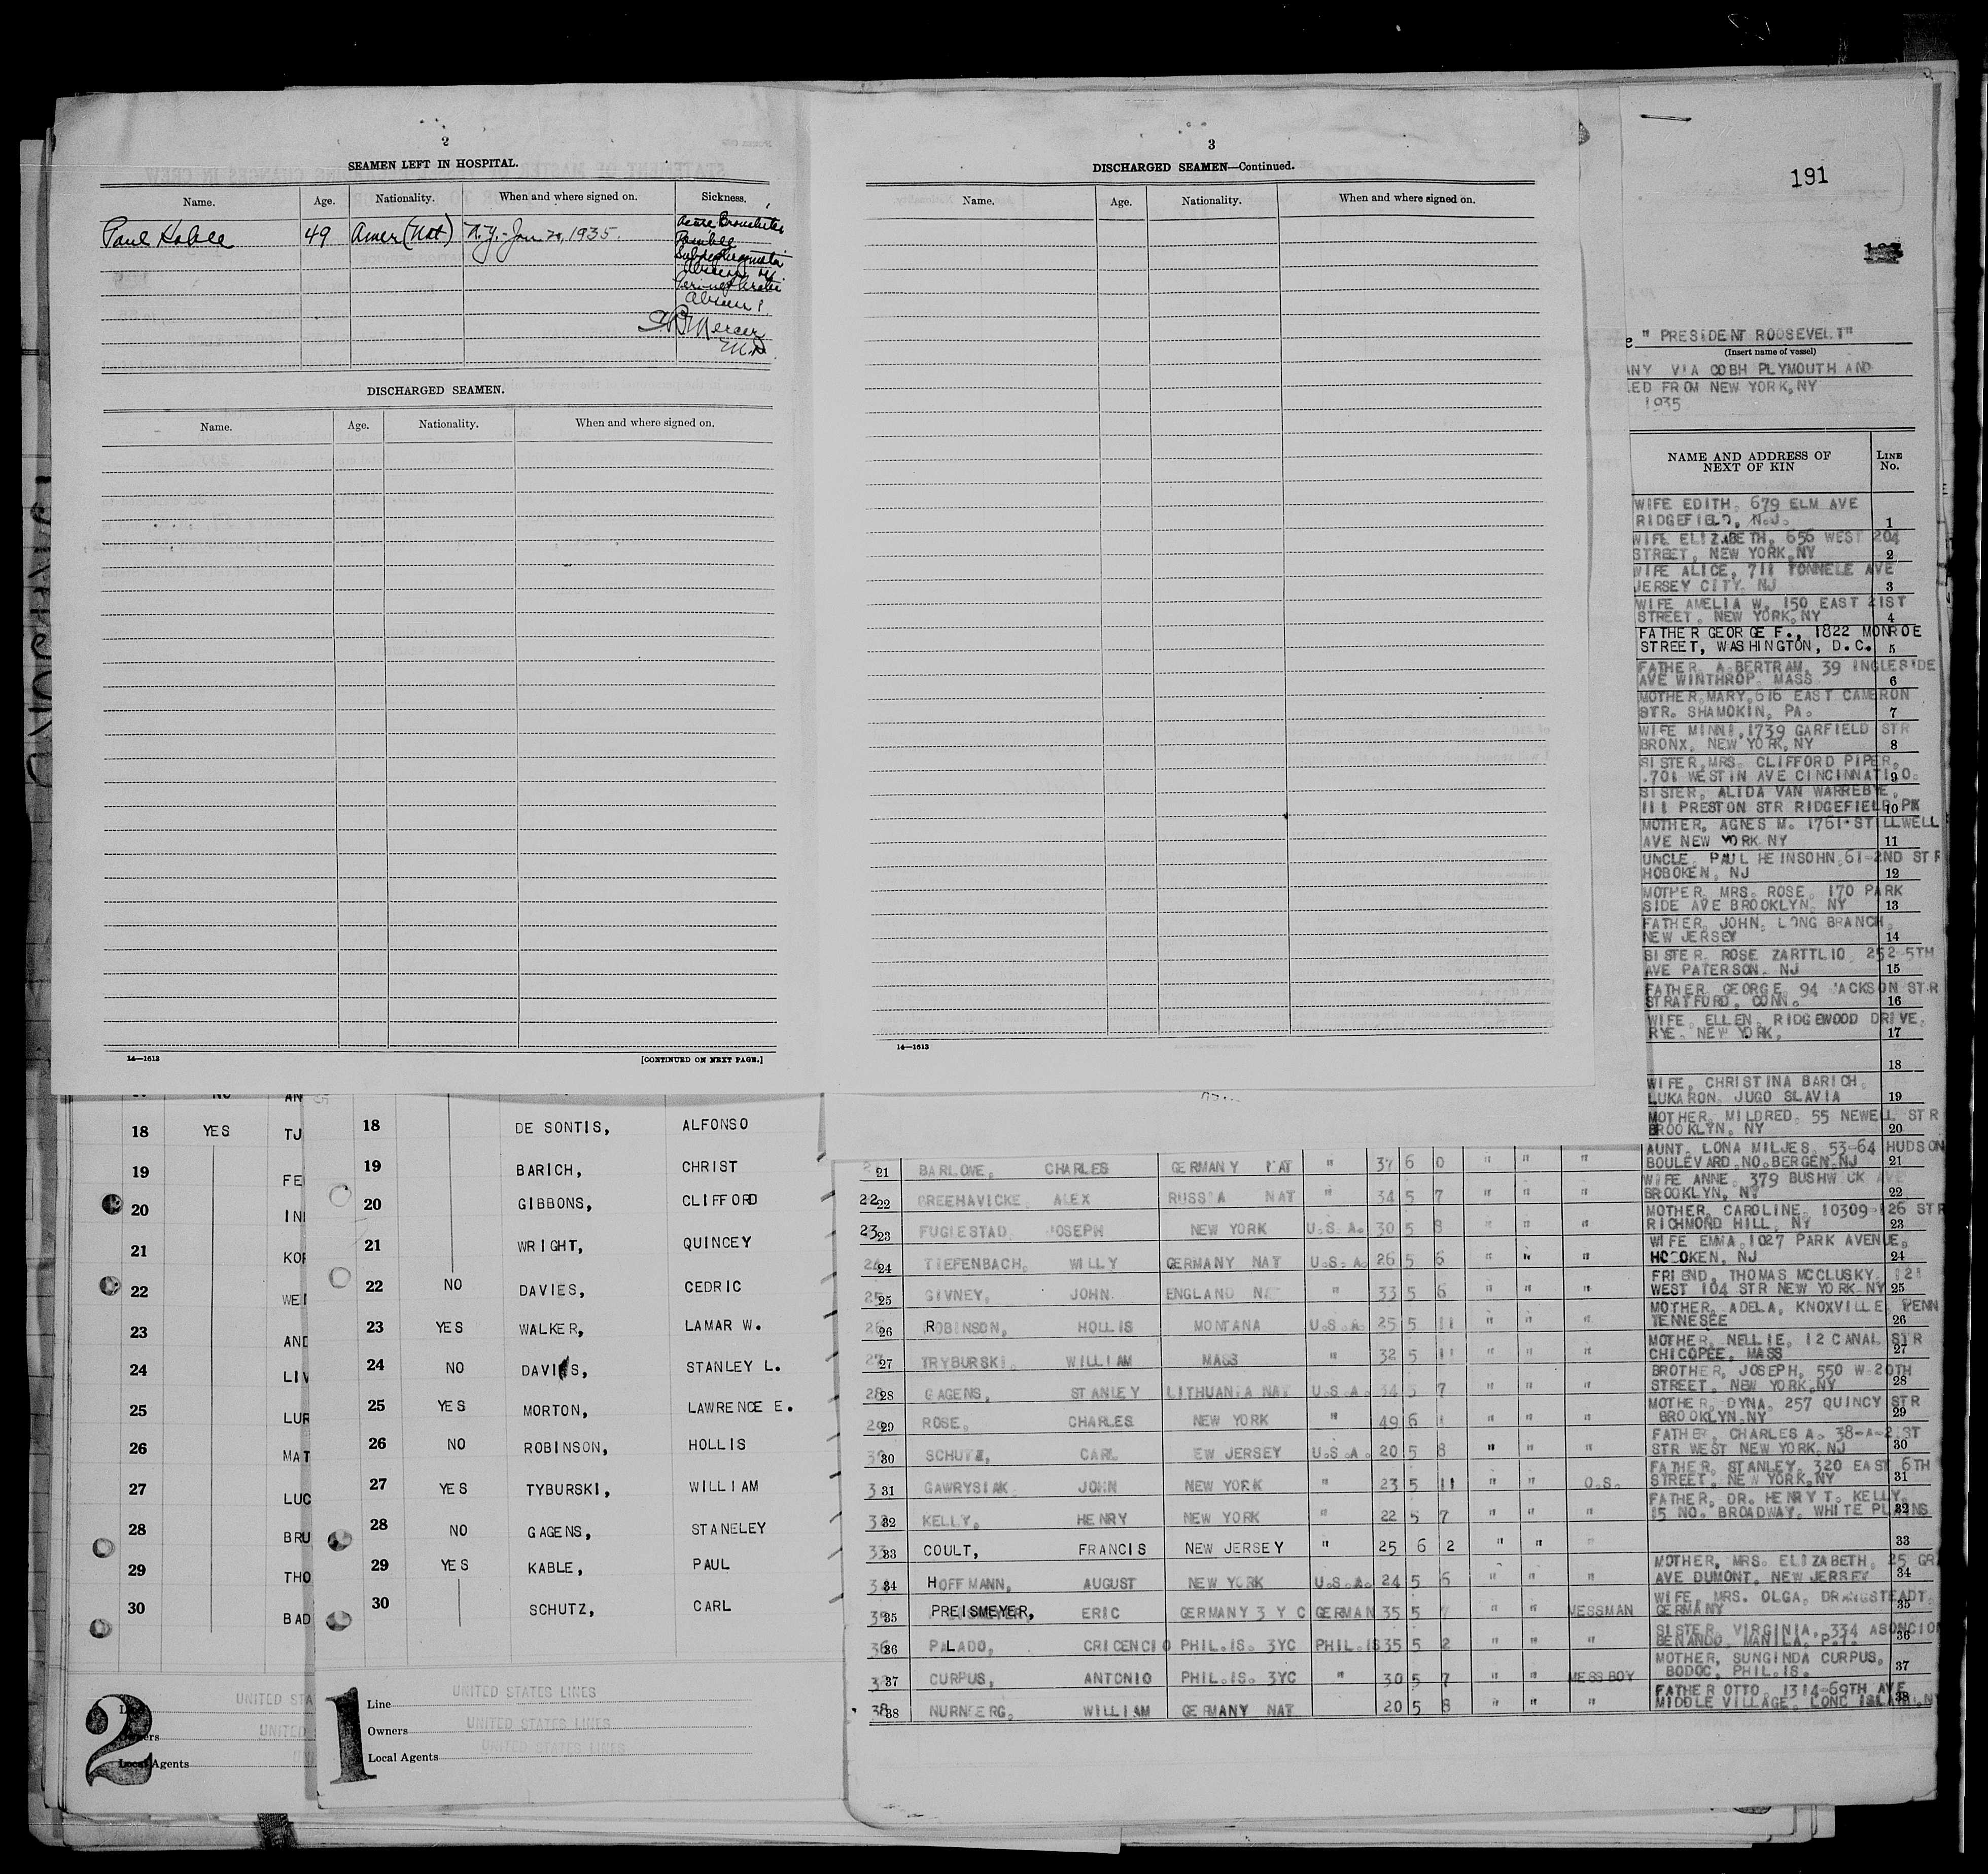 2
SEAMEN LEFT IN HOSPITAL.
Name. Age. Nationality. When and where signed on. Sickness.
Paul Kable 49 Amer (Nat) N.Y.- Jan 1935.
Mercer
M.D.
DISCHARGED SEAMEN.
Name. Age. Nationality. When and where signed on.
14—1613 [CONTINUED ON NEXT PAGE.]
3
DISCHARGED SEAMEN—Continued.
Name. Age. Nationality. When and where signed on.
14—1613
191
" PRESIDENT ROOSEVELT"
(Insert name of vessel)
ANY VIA COBH PLYMOUTH AND
LED FROM NEW YORK,NY
1935
NAME AND ADDRESS OF
NEXT OF KIN
LINE
No.
WIFE EDITH, 679 ELM AVE
RIDGEFIELD, N.J. 1
WIFE ELIZABETH, 656 WEST 204
STREET, NEW YORK,NY 2
WIFE ALICE, 711 TONNELE AVE
JERSEY CITY, NJ 3
WIFE AMELIA W, 150 EAST 21ST
STREET, NEW YORK,NY 4
FATHER GEORGE F., 1822 MONROE
STREET, WASHINGTON, D.C. 5
FATHER, A.BERTRAM, 39 INGLESIDE
AVE WINTHROP, MASS 6
MOTHER,MARY,616 EAST CAMERON
STR. SHAMOKIN, PA. 7
WIFE MINNI,1739 GARFIELD STR
BRONX, NEW YORK,NY 8
SISTER,MRS. CLIFFORD PIPER,
.701 WESTIN AVE CINCINNATI,O. 9
SISTER, ALIDA VAN WARREBYE,
111 PRESTON STR RIDGEFIELD PK 10
MOTHER, AGNES M. 1761 STILLWELL
AVE NEW YORK NY 11
UNCLE, PAUL HEINSOHN,61-2ND STR
HOBOKEN, NJ 12
MOTHER, MRS. ROSE, 170 PARK
SIDE AVE BROOKLYN, NY 13
FATHER, JOHN, LONG BRANCH,
NEW JERSEY 14
SISTER, ROSE ZARTTLIO, 252-5TH
AVE PATERSON, NJ 15
FATHER, GEORGE, 94 JACKSON STR
STRATFORD, CONN. 16
WIFE, ELLEN, RIDGEWOOD DRIVE,
RYE, NEW YORK, 17
18
WIFE, CHRISTINA BARICH,
LUKARON, JUGO SLAVIA 19
MOTHER, MILDRED, 55 NEWELL STR
BROOKLYN, NY 20
AUNT, LONA MILJES, 53-64 HUDSON
BOULEVARD,NO.BERGEN,NJ 21
WIFE ANNE, 379 BUSHWICK AVE
BROOKLYN, NY 22
MOTHER, CAROLINE, 10309-126 STR
RICHMOND HILL, NY 23
WIFE EMMA,1027 PARK AVENUE,
HOBOKEN, NJ 24
FRIEND, THOMAS MCCLUSKY, 121
WEST 104 STR NEW YORK NY 25
MOTHER, ADELA, KNOXVILLE, PENN
TENNESEE 26
MOTHER, NELLIE, 12 CANAL STR
CHICOPEE, MASS 27
BROTHER, JOSEPH, 550 W-20TH
STREET, NEW YORK,NY 28
MOTHER, DYNA, 257 QUINCY STR
BROOKLYN,NY 29
FATHER, CHARLES A. 38-A-21ST
STR WEST NEW YORK,NJ 30
FATHER, STANLEY, 320 EAST 6TH
STREET, NEW YORK,NY 31
FATHER, DR. HENRY T. KELLY,
15 NO. BROADWAY, WHITE PLAINS 32
33
MOTHER, MRS. ELIZABETH, 25 GR
AVE DUMONT, NEW JERSEY 34
WIFE, MRS. OLGA, DRANGSTEADT,
GERMANY 35
SISTER, VIRGINIA, 334 ASONCION
BENANDO, MANILA, P.I. 36
MOTHER, SUNGINDA CURPUS,
BODOC, PHIL.IS. 37
FATHER OTTO, 1314-69TH AVE
MIDDLE VILLAGE, LONG ISLAND,NY 38
21 BARLOWE, CHARLES GERMANY NAT " 37 6 0 " " "
22 22 GREEHAVICKE, ALEX RUSSIA NAT " 34 5 7 " " "
23 23 FUGLESTAD, JOSEPH NEW YORK U.S.A. 30 5 8 " " "
24 TIEFENBACH, WILLY GERMANY NAT U.S.A. 26 5 6 " " "
25 GIVNEY, JOHN ENGLAND NAT " 33 5 6 " " "
26 ROBINSON, HOLLIS MONTANA U.S.A. 25 5 11 " " "
27 TRYBURSKI, WILLIAM MASS " 32 5 11 " " "
28 GAGENS, STANLEY LITHUANIA NAT U.S.A. 34 5 7 " " "
29 ROSE, CHARLES NEW YORK " 49 6 1 " " "
30 SCHUTZ, CARL EW JERSEY U.S.A. 20 5 8 " " "
31 GAWRYSIAK JOHN NEW YORK " 23 5 11 " " O.S.
32 KELLY, HENRY NEW YORK " 22 5 7 " " "
33 COULT, FRANCIS NEW JERSEY " 25 6 2 " " "
34 HOFFMANN, AUGUST NEW YORK U.S.A. 24 5 6 " " "
35 PREISMEYER, ERIC GERMANY 3 Y C GERMAN 35 5 7 " " MESSMAN
36 PALADO, CRICENCIO PHIL.IS. 3YC PHIL.IS 35 5 2 " " "
37 CURPUS, ANTONIO PHIL.IS. 3YC " 30 5 7 " " MESSBOY
38 NURNBERG, WILLIAM GERMANY NAT 20 5 8 " " "
NO AN
18 YES TJ
19 FE
20 INI
21 KOF
22 WEI
23 AND
24 LIV
25 LUR
26 MAT
27 LUC
28 BRU
29 THO
30 BAD
2
UNITED STA
UNITED
Local Agents
18 DE SONTIS, ALFONSO
19 BARICH, CHRIST
20 GIBBONS, CLIFFORD
21 WRIGHT, QUINCEY
22 NO DAVIES, CEDRIC
23 YES WALKER, LAMAR W.
24 NO DAVIES, STANLEY L.
25 YES MORTON, LAWRENCE E.
26 NO ROBINSON, HOLLIS
27 YES TYBURSKI, WILLIAM
28 NO GAGENS, STANELEY
29 YES KABLE, PAUL
30 SCHUTZ, CARL
1
Line UNITED STATES LINES
Owners UNITED STATES LINES
Local Agents UNITED STATES LINES